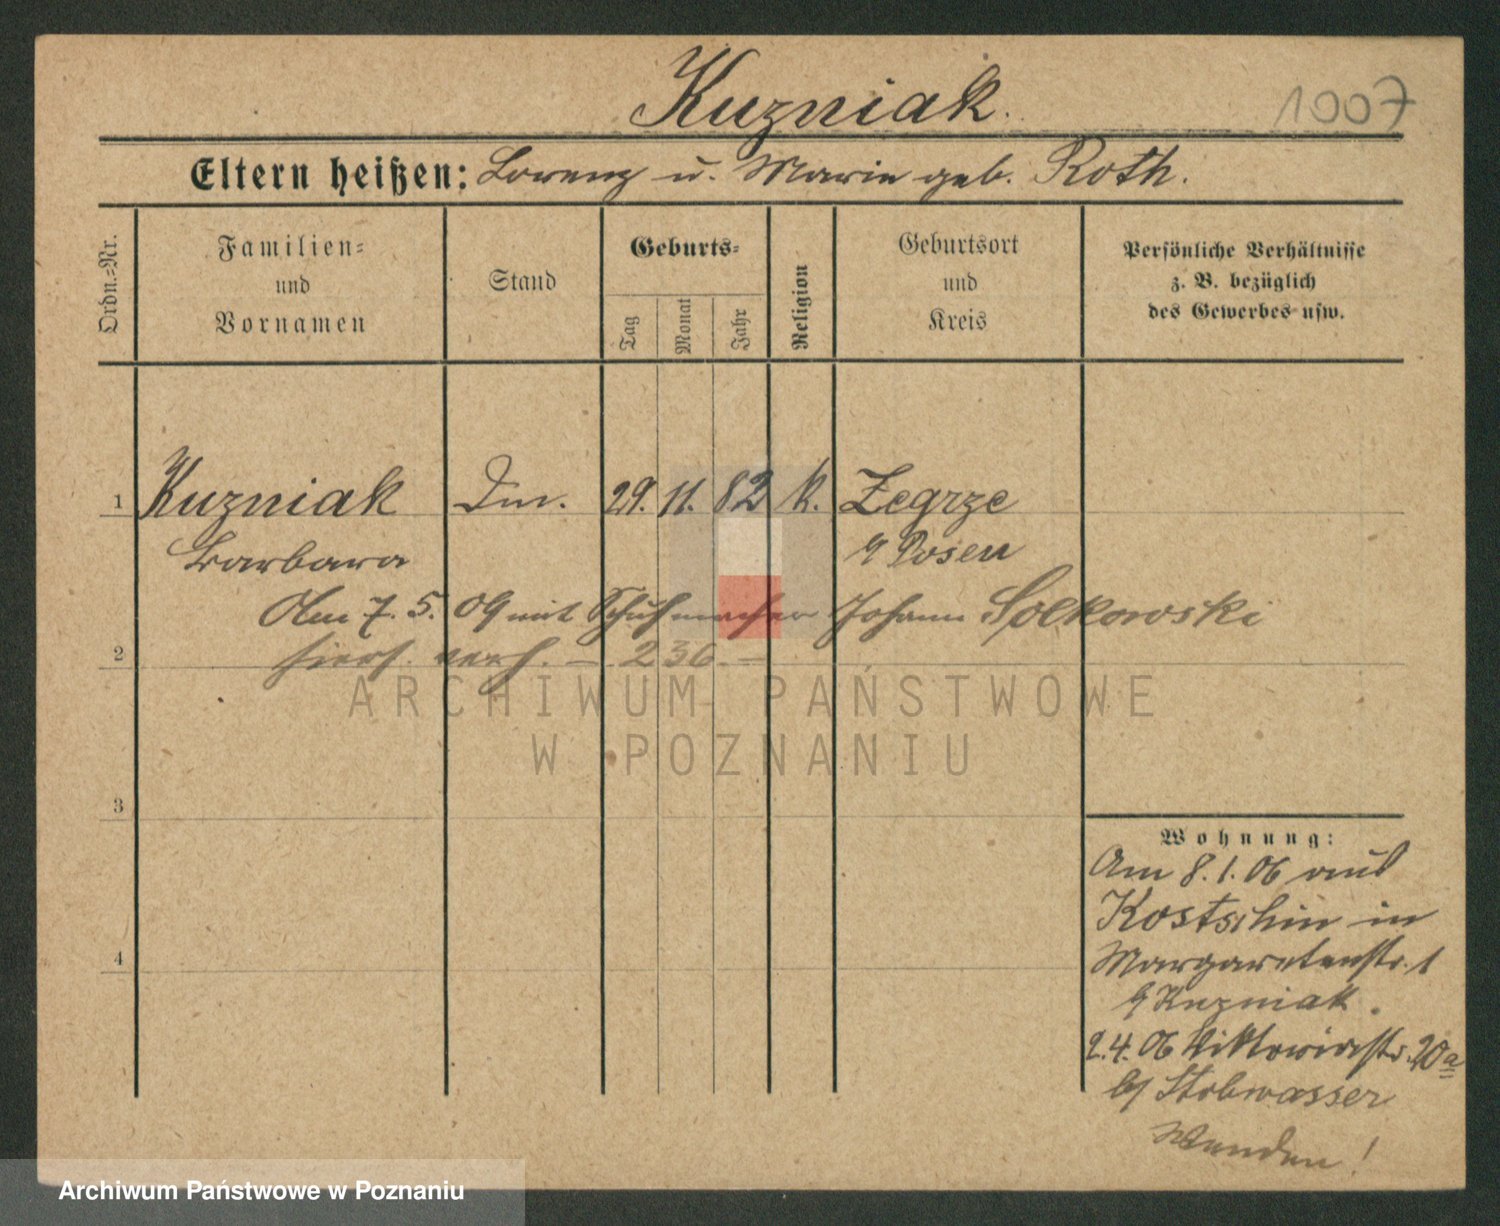 Kuzniak.
1007
Eltern heißen: Lorenz u. Marie geb. Roth.
Ordn.-Nr.
Familien-
und
Vornamen
Stand
Geburts-
Tag
Monat
Jahr
Religion
Geburtsort
und
Kreis
Persönliche Verhältnisse
z. B. bezüglich
des Gewerbes usw.
1 Kuzniak 29. 11. 82 k. Zegrze
Barbara Posen
Am 7. 5. 09 mit Schuhmacher Johann Solkowski
2 hiers. verh. – 236. –
ARCHIWUM PAŃSTWOWE
W POZNANIU
3
4
Wohnung:
Am 8. 1. 06 aus
Kostschin in
Margaretenstr. 1
b/ Kuzniak.
2. 4. 06 Viktoriastr. 20a
b/ Stobwasser
Wenden!
Archiwum Państwowe w Poznaniu